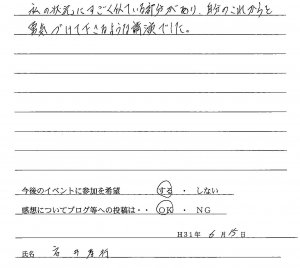 私の状況にすごく似ている部分があり、自分のこれからを
勇気づけて下さるような講演でした。
今後のイベントに参加を希望 する ・ しない
感想についてブログ等への投稿は・・ OK ・ NG
H31年 6月 15日
氏名